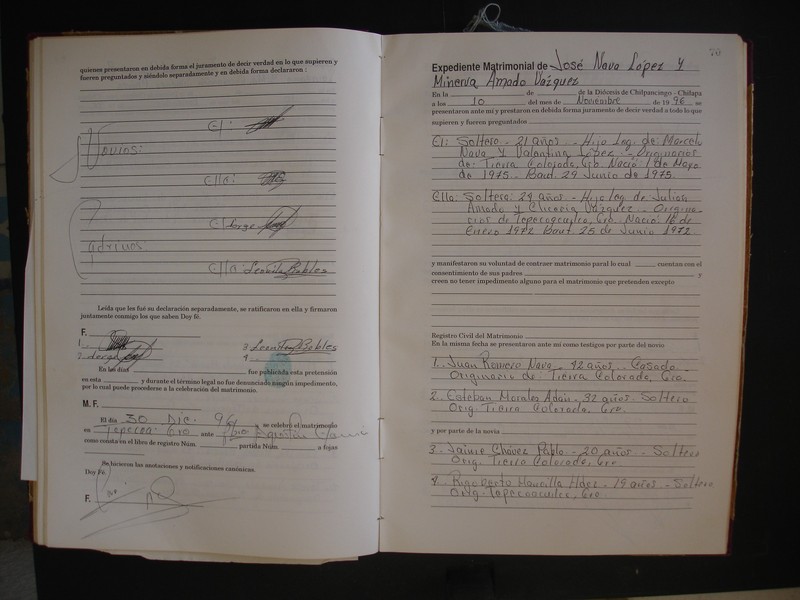 quienes presentaron en debida forma el juramento de decir verdad en lo que supieren y
fueren preguntados y siéndolo separadamente y en debida forma declararon :
El:
Novios:
Ella:
El Jorge
Padrinos:
Ella: Leonila Robles
Leída que les fué su declaración separadamente, se ratificaron en ella y firmaron
juntamente conmigo los que saben Doy fé.
F.
1. 3 Leonila Robles
2 Jorge 4
En los días fue publicada esta pretensión
en esta y durante el término legal no fue denunciado ningún impedimento,
por lo cual puede procederse a la celebración del matrimonio.
M. F.
El día 30 Dic. 96 y se celebró el matrimonio
en Tepecoa. Gro ante Pbro Agustín
como consta en el libro de registro Núm. partida Núm a fojas
Se hicieron las anotaciones y notificaciones canónicas.
Doy Fé.
F.
70
Expediente Matrimonial de José Nava López Y
Minerva Amado Vázquez
En la de de la Diócesis de Chilpancingo - Chilapa
a los 10 del mes de Noviembre de 1996 se
presentaron ante mí y prestaron en debida forma juramento de decir verdad a todo lo que
supieren y fueren preguntados
El: Soltero - 21 años - Hijo Leg. de: Marcelo
Nava Y Valentina López - Originarios
de: Tierra Colorada, Gro. Nació: 1 de Mayo
de 1975. Baut. 29 Junio de 1975.
Ella: Soltera: 24 años - Hija Leg. de Julian
Amado y Gliceria Vázquez - Origina-
rios de Tepecoacuilco, Gro. Nació: 16 de
Enero 1972 Baut 25 de Junio 1972
y manifestaron su voluntad de contraer matrimonio paral lo cual cuentan con el
consentimiento de sus padres y
creen no tener impedimento alguno para el matrimonio que pretenden excepto
Registro Civil del Matrimonio
En la misma fecha se presentaron ante mí como testigos por parte del novio
1. Juan Romero Nava - 42 años - Casado -
Originario de: Tierra Colorada, Gro.
2. Esteban Morales Adán - 32 años - Soltero
Orig. Tierra Colorada. Gro.
y por parte de la novia
3 - Jaime Chávez Pablo - 20 años - Soltero
Orig. Tierra Colorada. Gro
4 - Rigoberto Mancilla Hdez - 19 años - Soltero
Orig. Tepecoacuilco, Gro